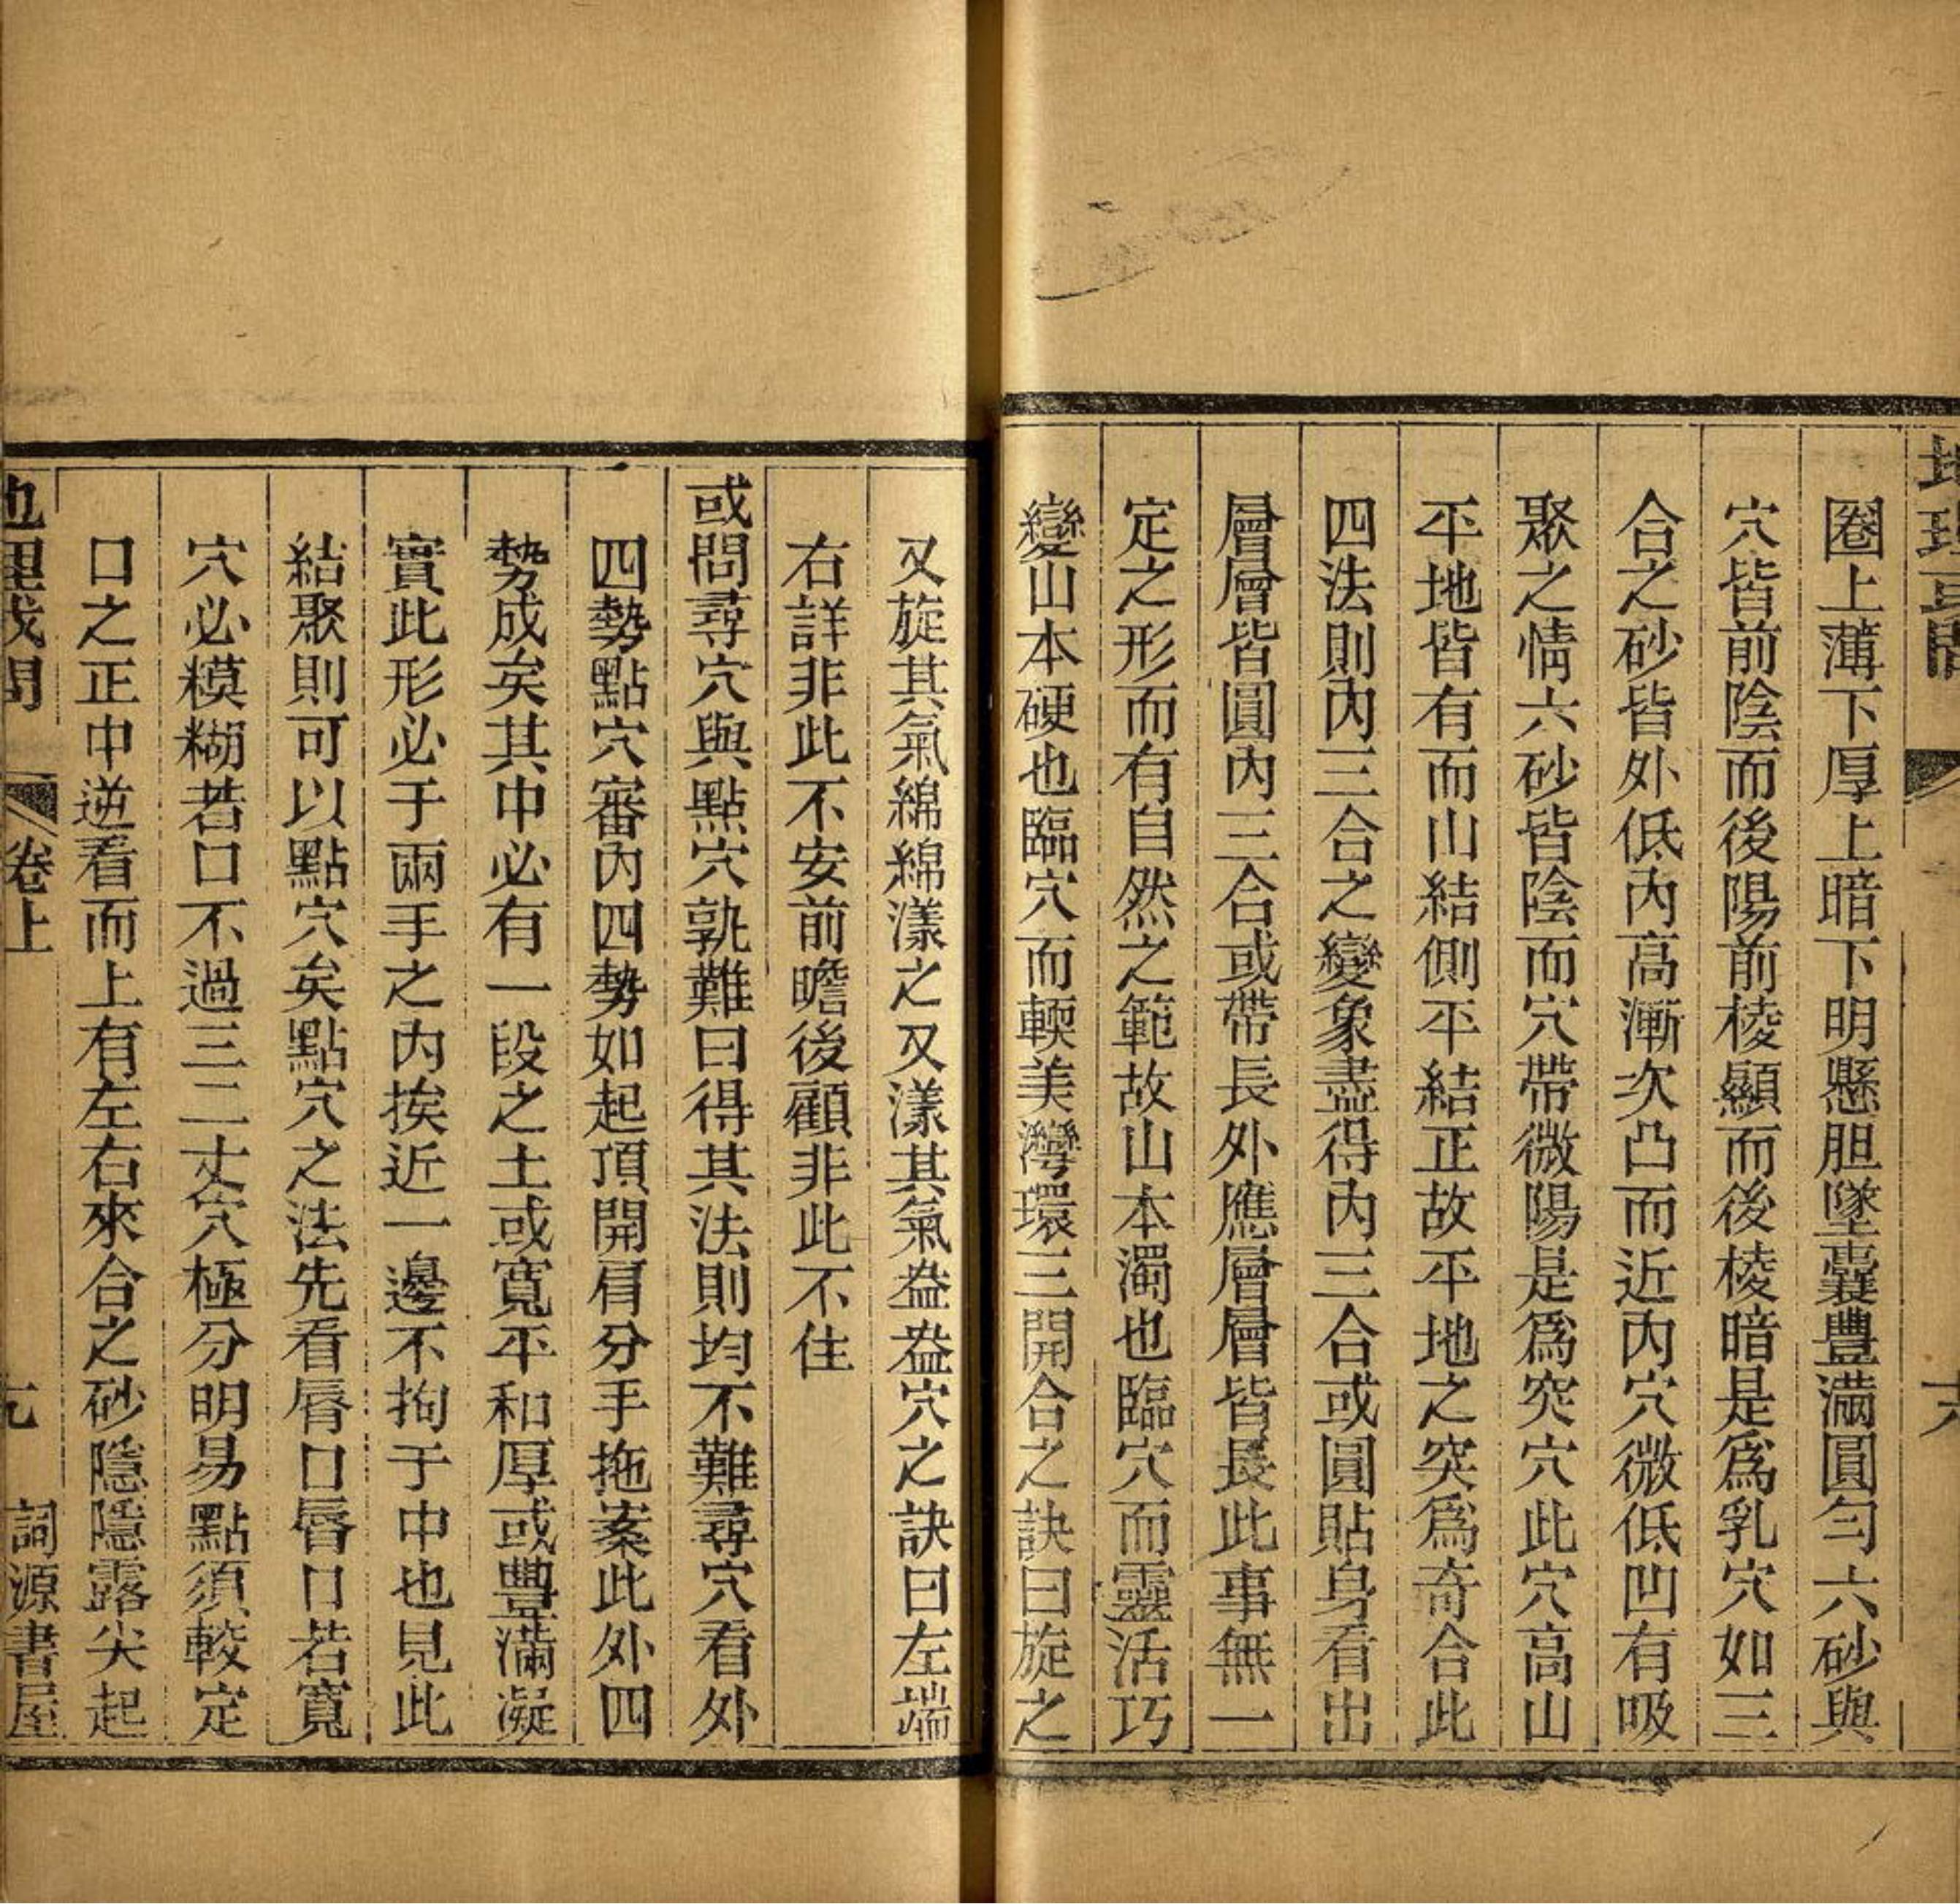 圈上薄下厚上暗下明懸胆墜囊豐滿圓勻六砂與
穴皆前陰而後陽前棱顯而後棱暗是爲乳穴如三
合之砂皆外低內高漸次凸而近內穴微低凹有吸
聚之情六砂皆陰而穴帶微陽是爲突穴此穴高山
平地皆有而山結側平結正故平地之突爲奇合此
四法則內三合之變象盡得內三合或圓貼身看出
層層皆圓內三合或帶長外應層層皆長此事無一
定之形而有自然之範故山本濁也臨穴而靈活巧
變山本硬也臨穴而輭美灣環三開合之訣曰旋之
又旋其氣綿綿漾之又漾其氣盎盎穴之訣曰左端
右詳非此不安前瞻後顧非此不住
或問尋穴與點穴孰難曰得其法則均不難尋穴看外
四勢點穴審內四勢如起頂開肩分手拖案此外四
勢成矣其中必有一段之土或寬平和厚或豐滿凝
實此形必于兩手之內挨近一邊不拘于中也見此
結聚則可以點穴矣點穴之法先看唇口唇口若寬
穴必糢糊若口不過三二丈穴極分明易點須較定
口之正中逆看而上有左右來合之砂隱隱露尖起
地理或問 卷上 詞源書屋